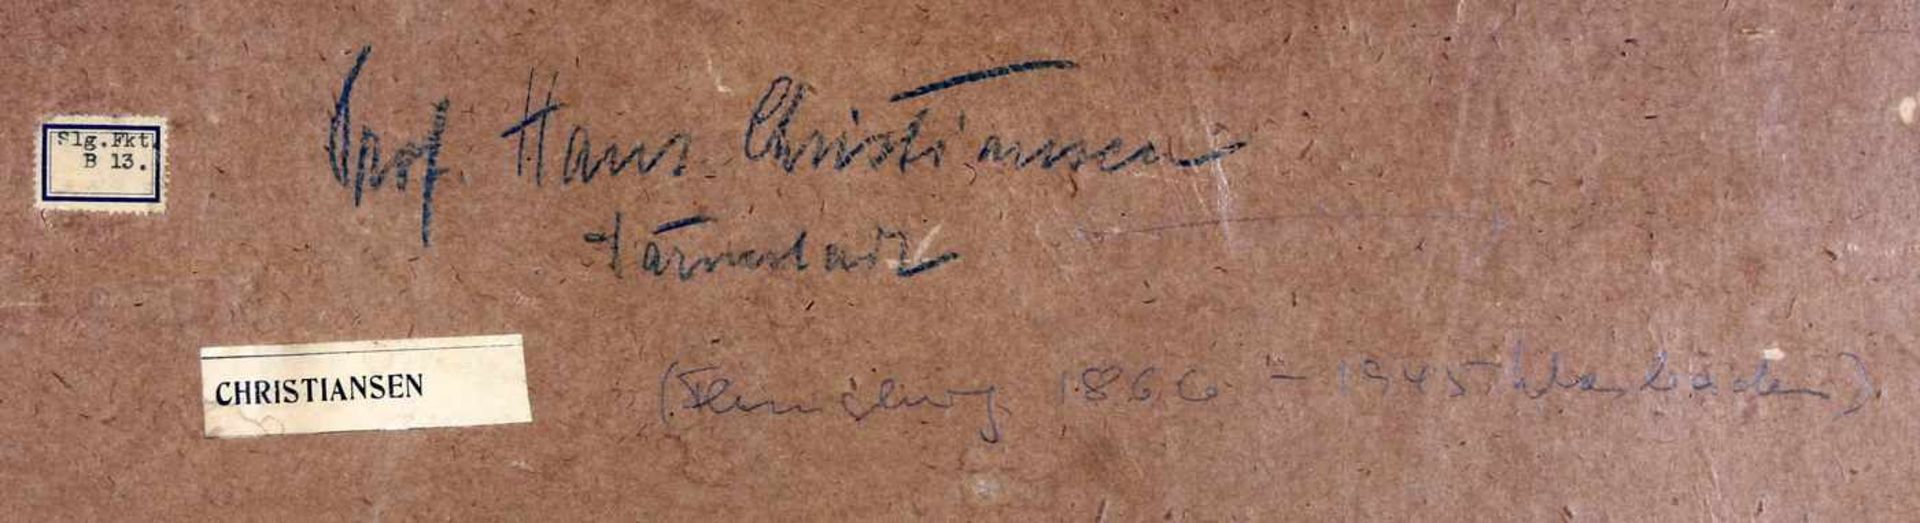 Slg.Fkt.
B 13.
Prof. Hans Christiansen
Darmstadt
CHRISTIANSEN
(Flensburg 1866 - 1945 Wiesbaden)